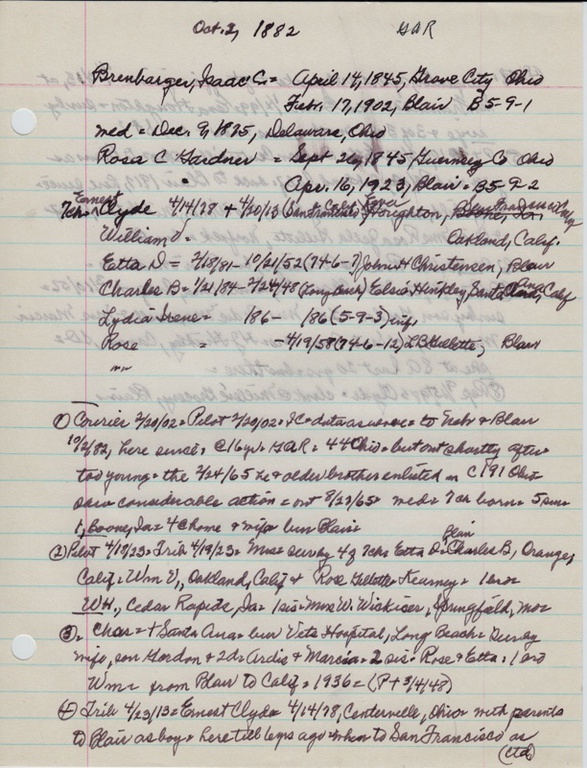 Oct. 2, 1882 GAR
Brenbarger, Isaac C. = April 14, 1845, Grove City Ohio
Febr. 17, 1902, Blair B5-9-1
med = Dec. 9, 1875, Delaware, Ohio
Rosa C Gardner = Sept 26, 1845 Guernsey Co Ohio
Apr. 16, 1923, Blair = B5-9-2
Ernest
7ch = Clyde 4/14/78 + 4/20/13 (San Francisco) Houghton,
William V. = Oakland, Calif.
Etta D = 2/18/81 - 10/21/52 (74-6-7) John H Christensen, Blair
Charles B = 1/21/84 - 2/24/48 (Long Beach) Elsie Hinkley, Santa Ana, Calif
Lydia Irene = 186 - 186 (5-9-3) inf.
Rose = -4/19/58 (74-6-12) LB Gillette, Blair
" "
1) Courier 2/20/02 = Pilot 2/20/02 = IC = data as above = to Nebr & Blair
10/2/82, here since = @16yr = GAR = 44 Ohio = but out shortly after
too young = the 2/24/65 he & older brother enlisted in C 191 Ohio
saw considerable action = out 8/27/65 = med = 7ch born = 5 surv
1, Boone, Ia = 4@home & wife bur Blair =
2) Pilot 4/18/23 = Trib 4/19/23 = Mrs surv by 4 of 7chs Etta D = Blair Charles B, Orange,
Calif = Wm V, Oakland, Calif & Rose Gillette = Kearney = 1 bro =
WH., Cedar Rapids, Ia = 1 sis = Mrs W. Wiskiser, Springfield, Mo =
3) Chas = + Santa Ana = bur Vets Hospital, Long Beach = Survby
wife, son Gordon & 2d = Ardis & Marcia = 2 sis = Rose & Etta = 1 bro
Wm = from Blair to Calif = 1936 = (P + 3/4/48)
4) Trib 4/23/13 = Ernest Clyde 4/14/78, Centerville, Ohio = with parents
to Blair as boy = here till 6yrs ago = when to San Francisco as
(ctd)